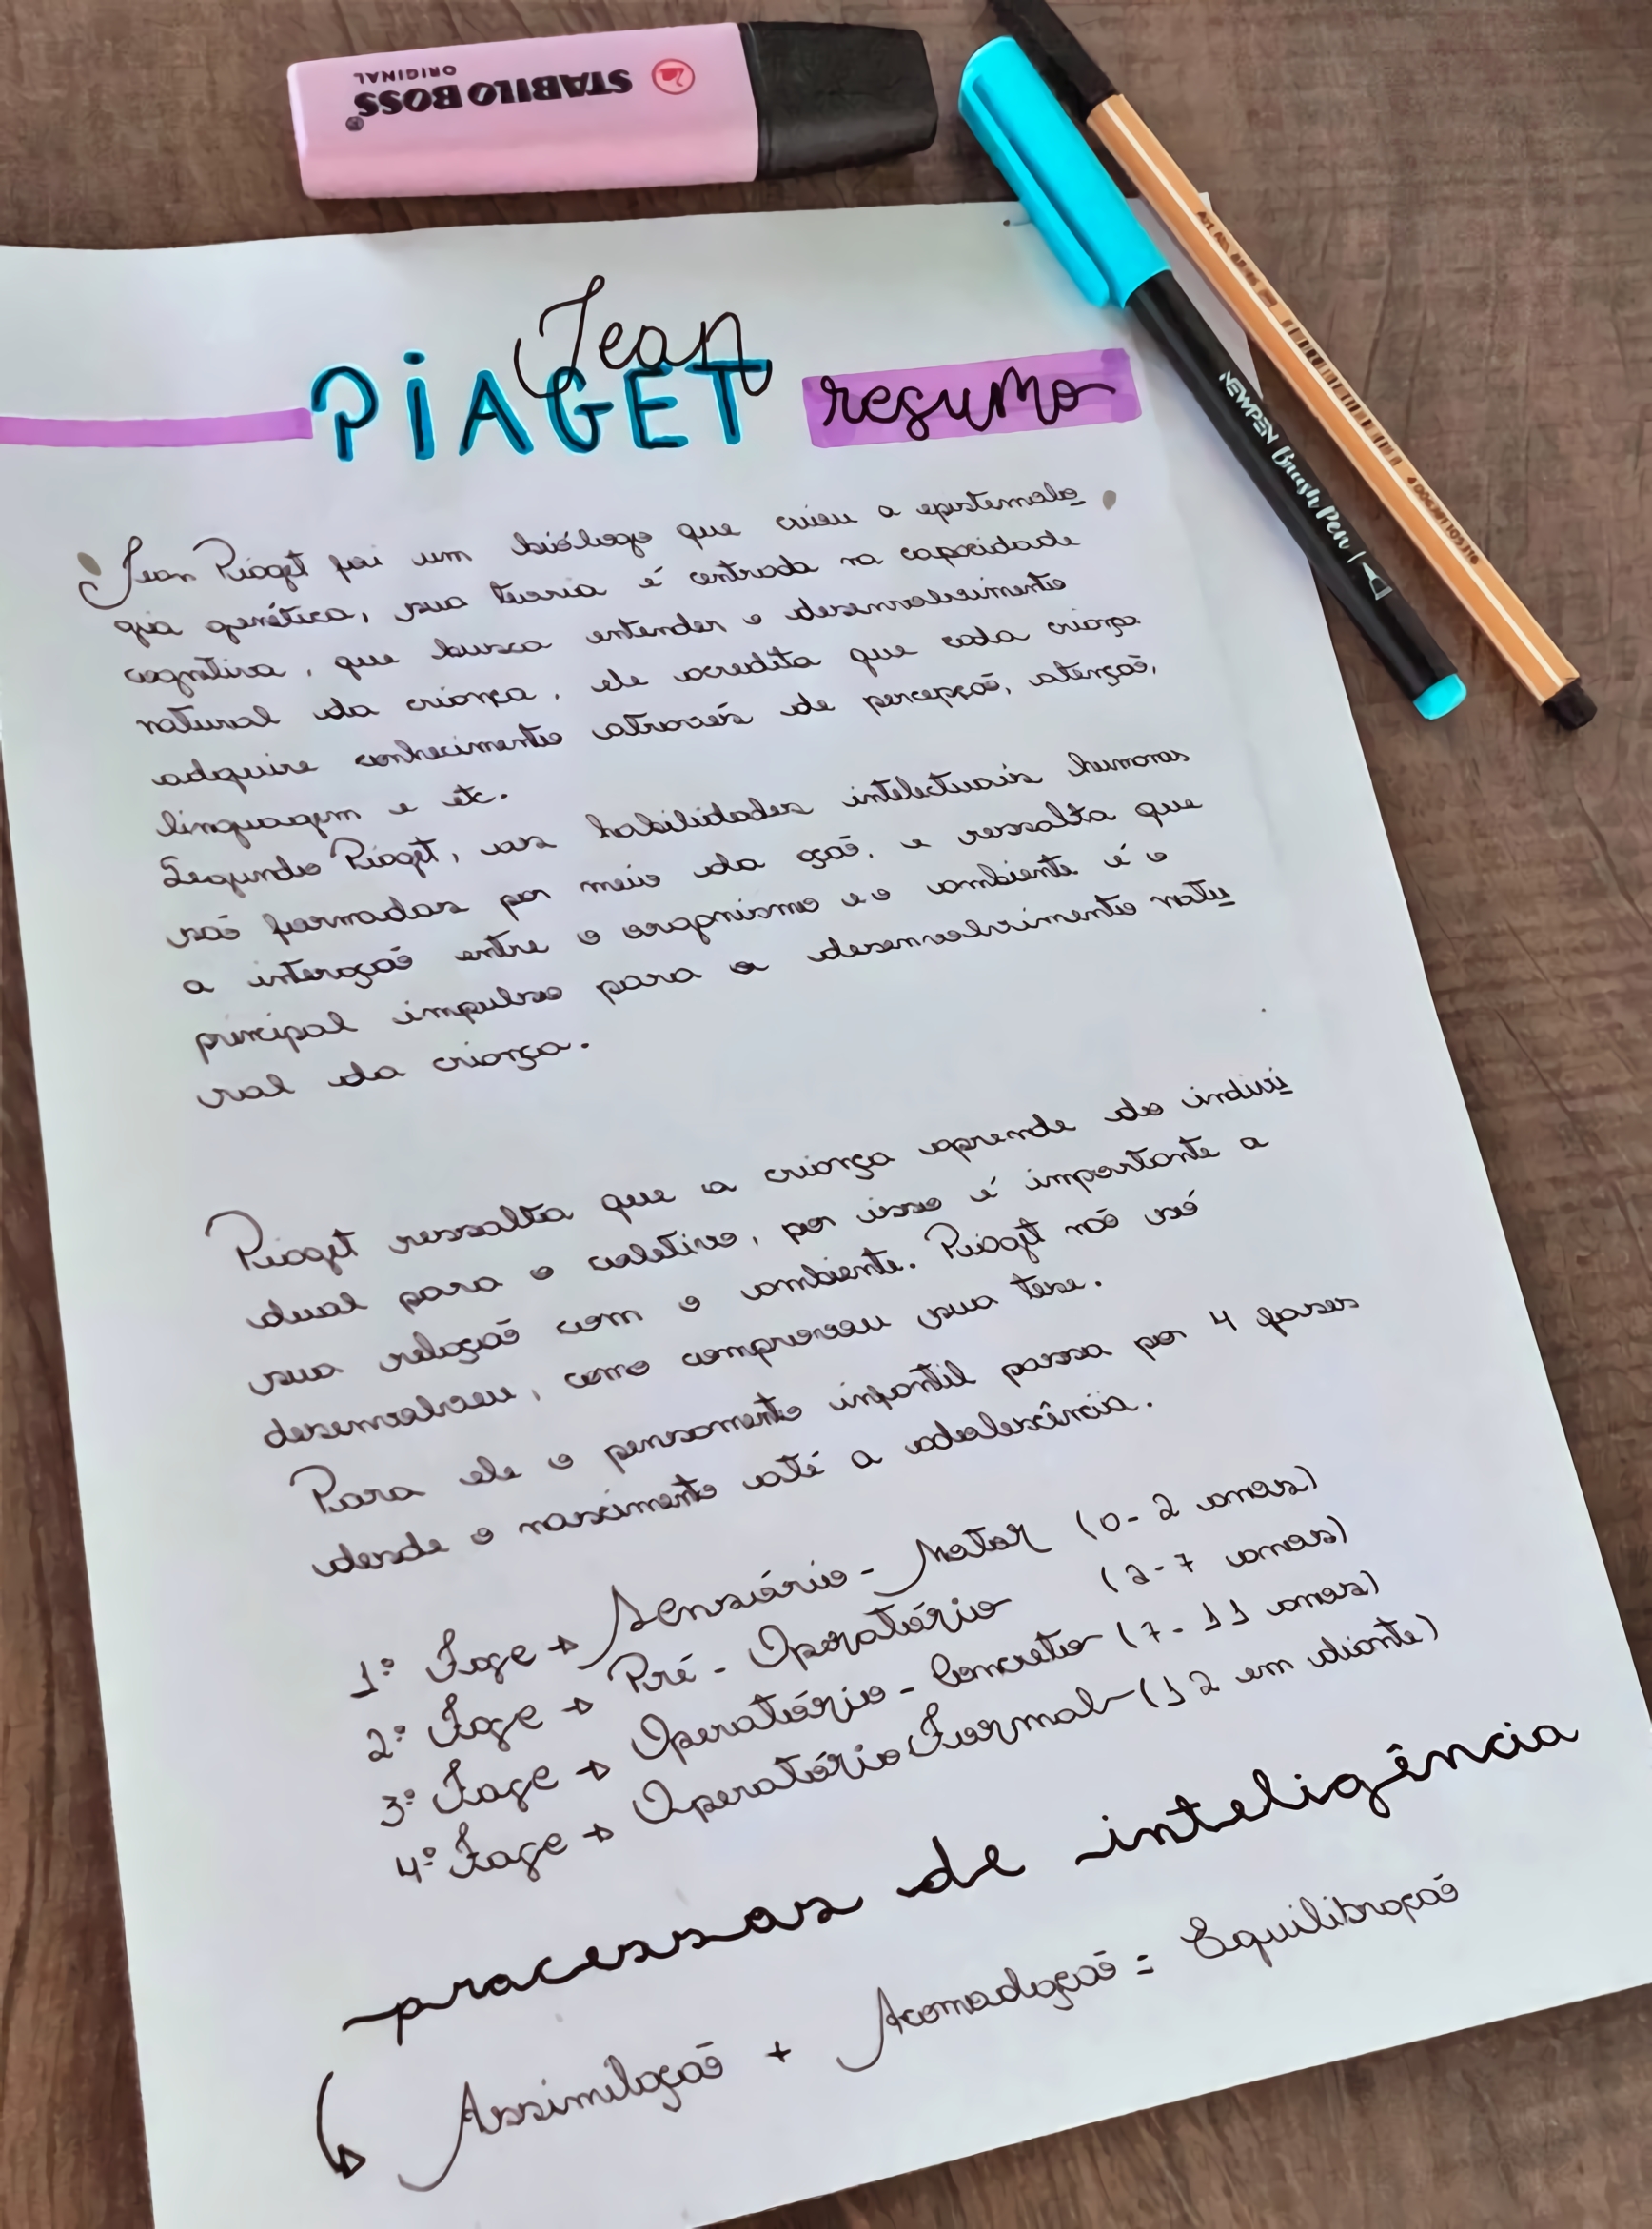 STABILO BOSS
ORIGINAL
NEWPEN Brush Pen
Jean
PiAGET resumo
Jean Piaget foi um biólogo que criou a epistemolo
gia genética, sua teoria é centrada na capacidade
cognitiva, que busca entender o desenvolvimento
natural da criança, ele acredita que cada criança
adquire conhecimento através de percepção, atenção,
linguagem e etc.
Segundo Piaget, as habilidades intelectuais humanas
são formadas por meio da ção, e ressalta que
a interação entre o organismo e o ambiente é o
principal impulso para o desenvolvimento natu
ral da criança.
Piaget ressalta que a criança aprende do indivi
dual para o coletivo, por isso é importante a
sua relação com o ambiente. Piaget não só
desenvolveu, como comprovou sua tese.
Para ele o pensamento infantil passa por 4 fases
desde o nascimento até a adolescência.
1º Fase → Sensório - Motor (0-2 anos)
2º Fase → Pré - Operatório (2-7 anos)
3º Fase → Operatório - Concreto - (7-11 anos)
4º Fase → Operatório Formal - (12 em diante)
processos de inteligência
Assimilação + Acomodação = Equilibração